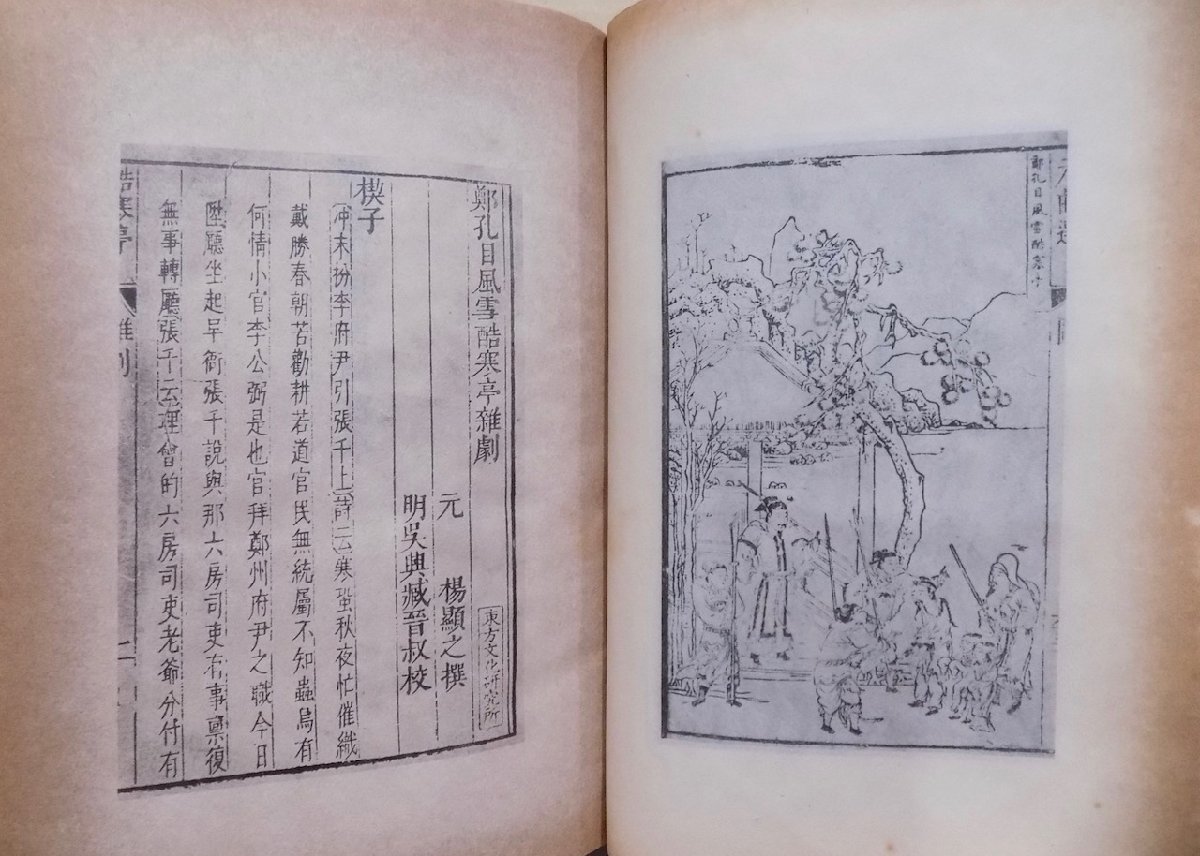 元曲選
圖
鄭孔目風雪酷寒亭
鄭孔目風雪酷寒亭雜劇
東方文化研究所
元 楊顯之撰
明吳興臧晉叔校
楔子
冲末扮李府尹引張千上詩云寒蛩秋夜忙催織
戴勝春朝苦勸耕若道官民無統屬不知蟲鳥有
何情小官李公弼是也官拜鄭州府尹之職今日
陞廳坐起早衙張千說與那六房司吏有事禀復
無事轉廳張千云理會的六房司吏老爺分付有
酷寒亭
雜劇